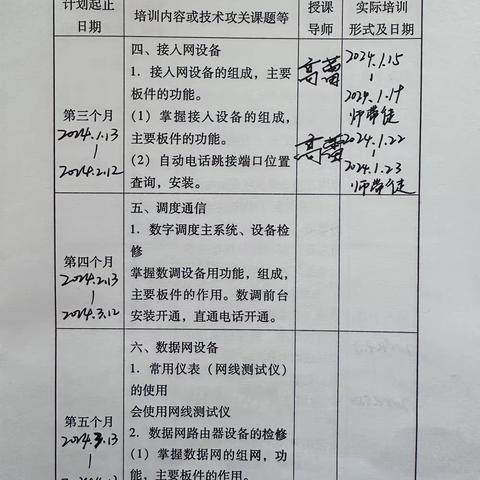 计划起止
日期
培训内容或技术攻关课题等
授课
导师
实际培训
形式及日期
第三个月
2024.1.13
2024.2.12
四、接入网设备
1. 接入网设备的组成，主要
板件的功能。
(1) 掌握接入设备的组成，
主要板件的功能。
(2) 自动电话跳接端口位置
查询，安装。
高蕾
高蕾
2024.1.15
2024.1.19
师带徒
2024.1.22
2024.1.23
师带徒
第四个月
2024.2.13
2024.3.12
五、调度通信
1. 数字调度主系统、设备检
修
掌握数调设备用功能，组成，
主要板件的作用。数调前台
安装开通，直通电话开通。
第五个月
2024.3.13
六、数据网设备
1. 常用仪表（网线测试仪）
的使用
会使用网线测试仪
2. 数据网路由器设备的检修
(1) 掌握数据网的组网，功
能，主要板件的作用。